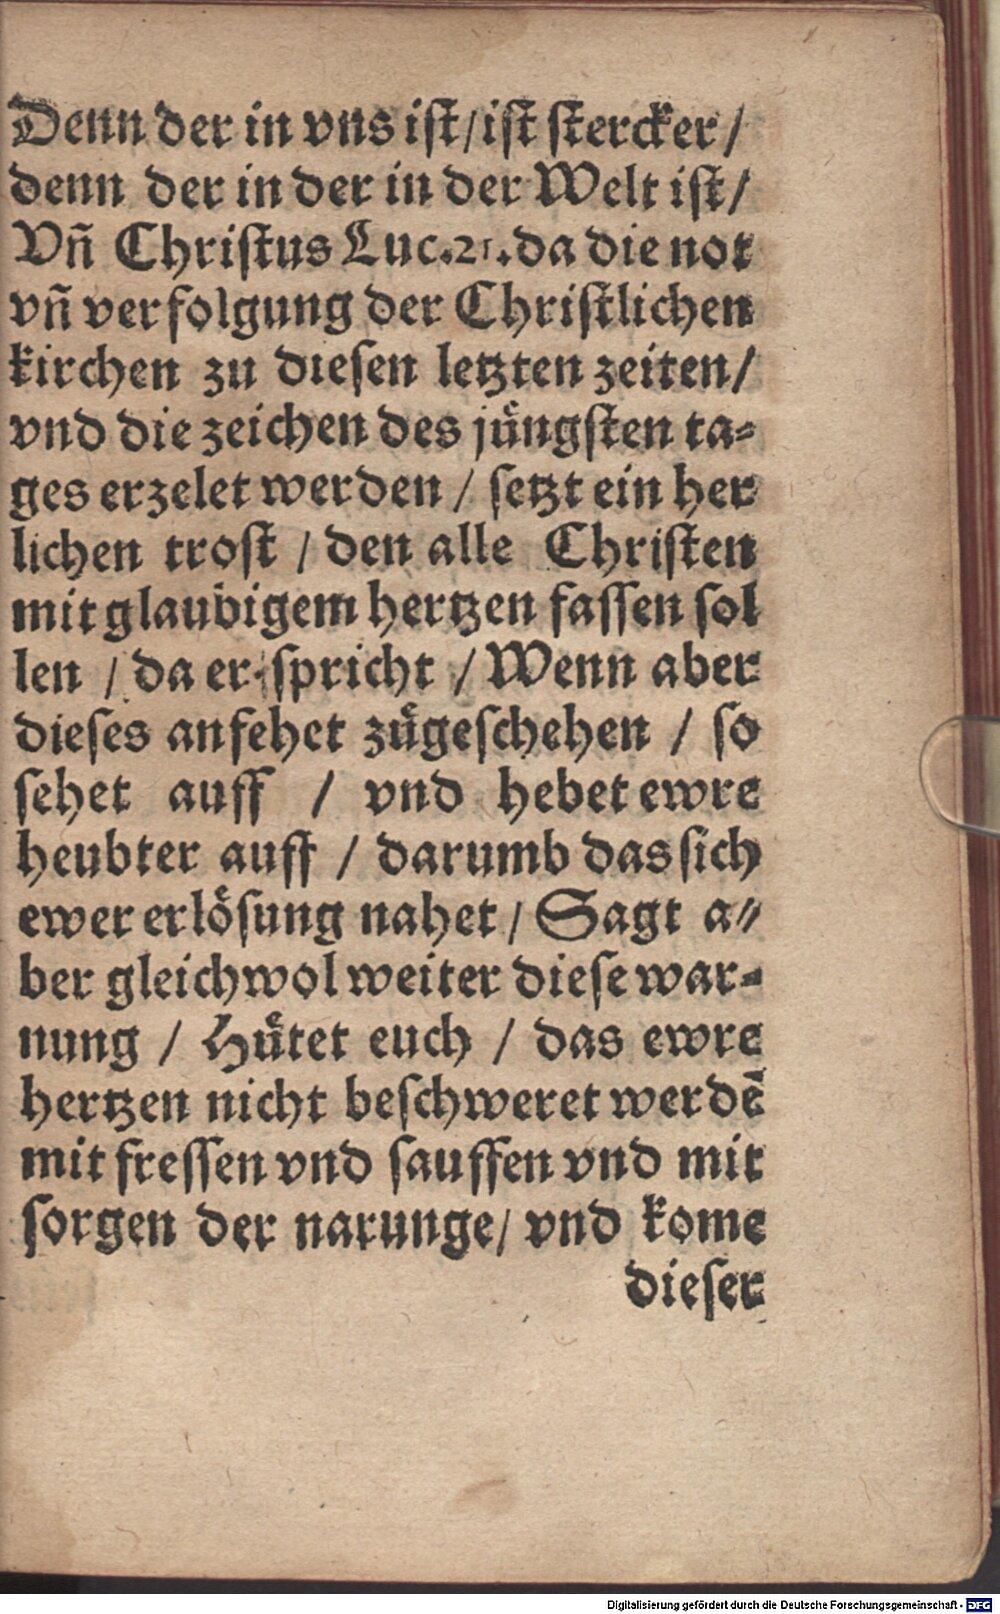 Denn der in vns iſt/iſt ſtercker/
denn der in der in der Welt iſt/
Vñ Chriſtus Luc.21.da die not
vñ verfolgung der Chriſtlichen
kirchen zu dieſen letzten zeiten/
vnd die zeichen des juͤngſten ta⸗
ges erzelet werden / ſetzt ein her
lichen troſt / den alle Chriſten
mit glaubigem hertzen faſſen ſol
len / da er ſpricht / Wenn aber
dieſes anfehet zuͤgeſchehen / ſo
ſehet auff / vnd hebet ewre
heubter auff / darumb das ſich
ewer erloͤſung nahet / Sagt a⸗
ber gleichwol weiter dieſe war⸗
nung / Huͤtet euch / das ewre
hertzen nicht beſchweret werdē
mit freſſen vnd ſauffen vnd mit
ſorgen der narunge/ vnd kome
dieſer
Digitalisierung gefördert durch die Deutsche Forschungsgemeinschaft - DFG